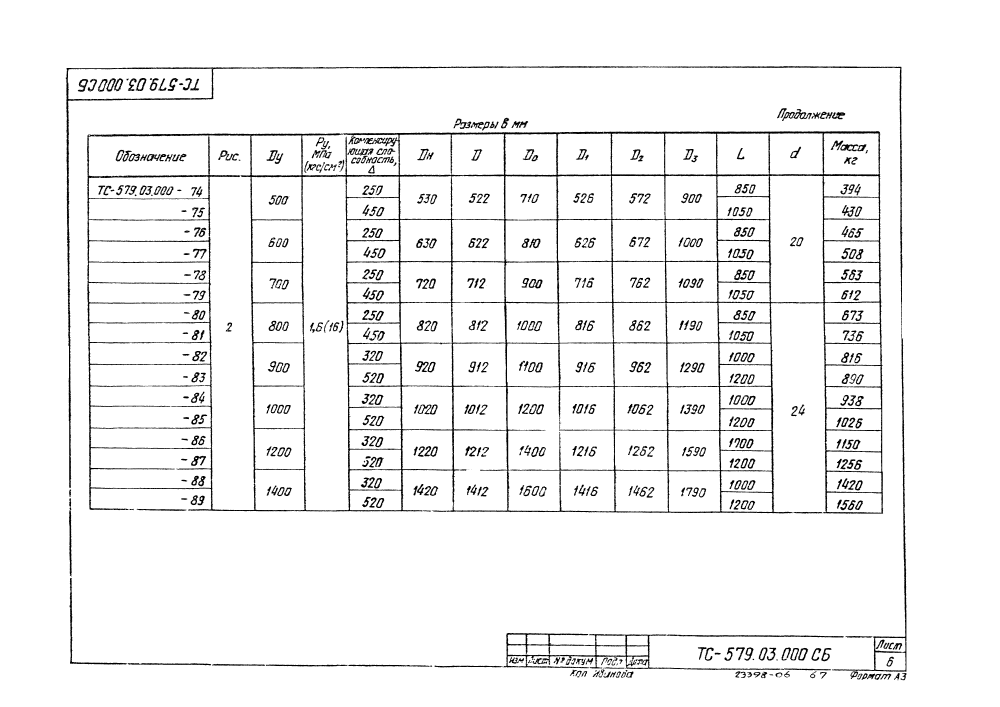 ТС-579.03.000 СБ
Продолжение
Размеры в мм
Обозначение Рис. Dу Pу, МПа (кгс/см²) Компенсирующая способность, Δ Dн D D₀ D₁ D₂ D₃ L d Масса, кг
ТС-579.03.000 - 74 2 500 1,6(16) 250 530 522 710 526 572 900 850 20 394
- 75 450 1050 430
- 76 600 250 630 622 810 626 672 1000 850 465
- 77 450 1050 508
- 78 700 250 720 712 900 716 762 1090 850 563
- 79 450 1050 612
- 80 800 250 820 812 1000 816 862 1190 850 24 673
- 81 450 1050 736
- 82 900 320 920 912 1100 916 962 1290 1000 816
- 83 520 1200 890
- 84 1000 320 1020 1012 1200 1016 1062 1390 1000 938
- 85 520 1200 1026
- 86 1200 320 1220 1212 1400 1216 1262 1590 1000 1150
- 87 520 1200 1256
- 88 1400 320 1420 1412 1600 1416 1462 1790 1000 1420
- 89 520 1200 1560
Изм Лист № докум Подп Дата
ТС-579.03.000 СБ
Лист
6
Коп Иванова 23398-06 67 Формат А3